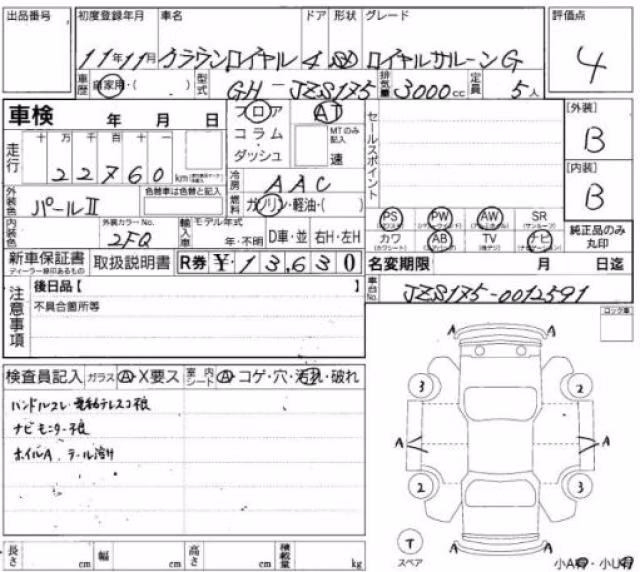 出品番号 初度登録年月 車名 ドア 形状 グレード 評価点
11年11月 クラウンロイヤル 4 SD ロイヤルサルーンG 4
車歴 自家用・( ) 型式 GH-JZS175 排気量 3000cc 定員 5人
車検 年 月 日 フロア AT MTのみ記入 セールスポイント [外装]
コラム・ B
ダッシュ 速
走行 十 万 千 百 十 一
22760 km 冷房 AAC [内装]
外装色 パールII 色替車は色替と記入 燃料 ガソリン・軽油・( ) B
内装色 外装カラーNo. 2FQ 輸入車 モデル年式 年・不明 D車・並 右H・左H
PS PW AW SR (サンルーフ) 純正品のみ丸印
カワ (カワシート) AB TV ナビ
新車保証書 ディーラー捺印あるもの 取扱説明書 R券 ¥・13,630 名変期限 月 日迄
注意事項 後日品【 】 車台No. JZS175-0012591
不具合箇所等 ロック車
検査員記入 ガラス A・X要ス 室内シート A・コゲ・穴・汚れ・破れ
ハンドルコレ・電動テレスコ不良
ナビモニター不良
ホイルA、テール溶け
A A
3 2
A A
2 3
T スペア A A
長さ cm 幅 cm 高さ cm 積載量 kg
小A有・小U有